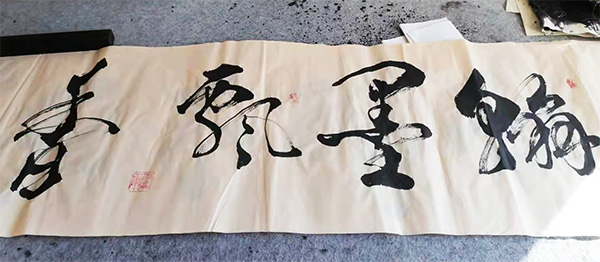 翰墨飘香